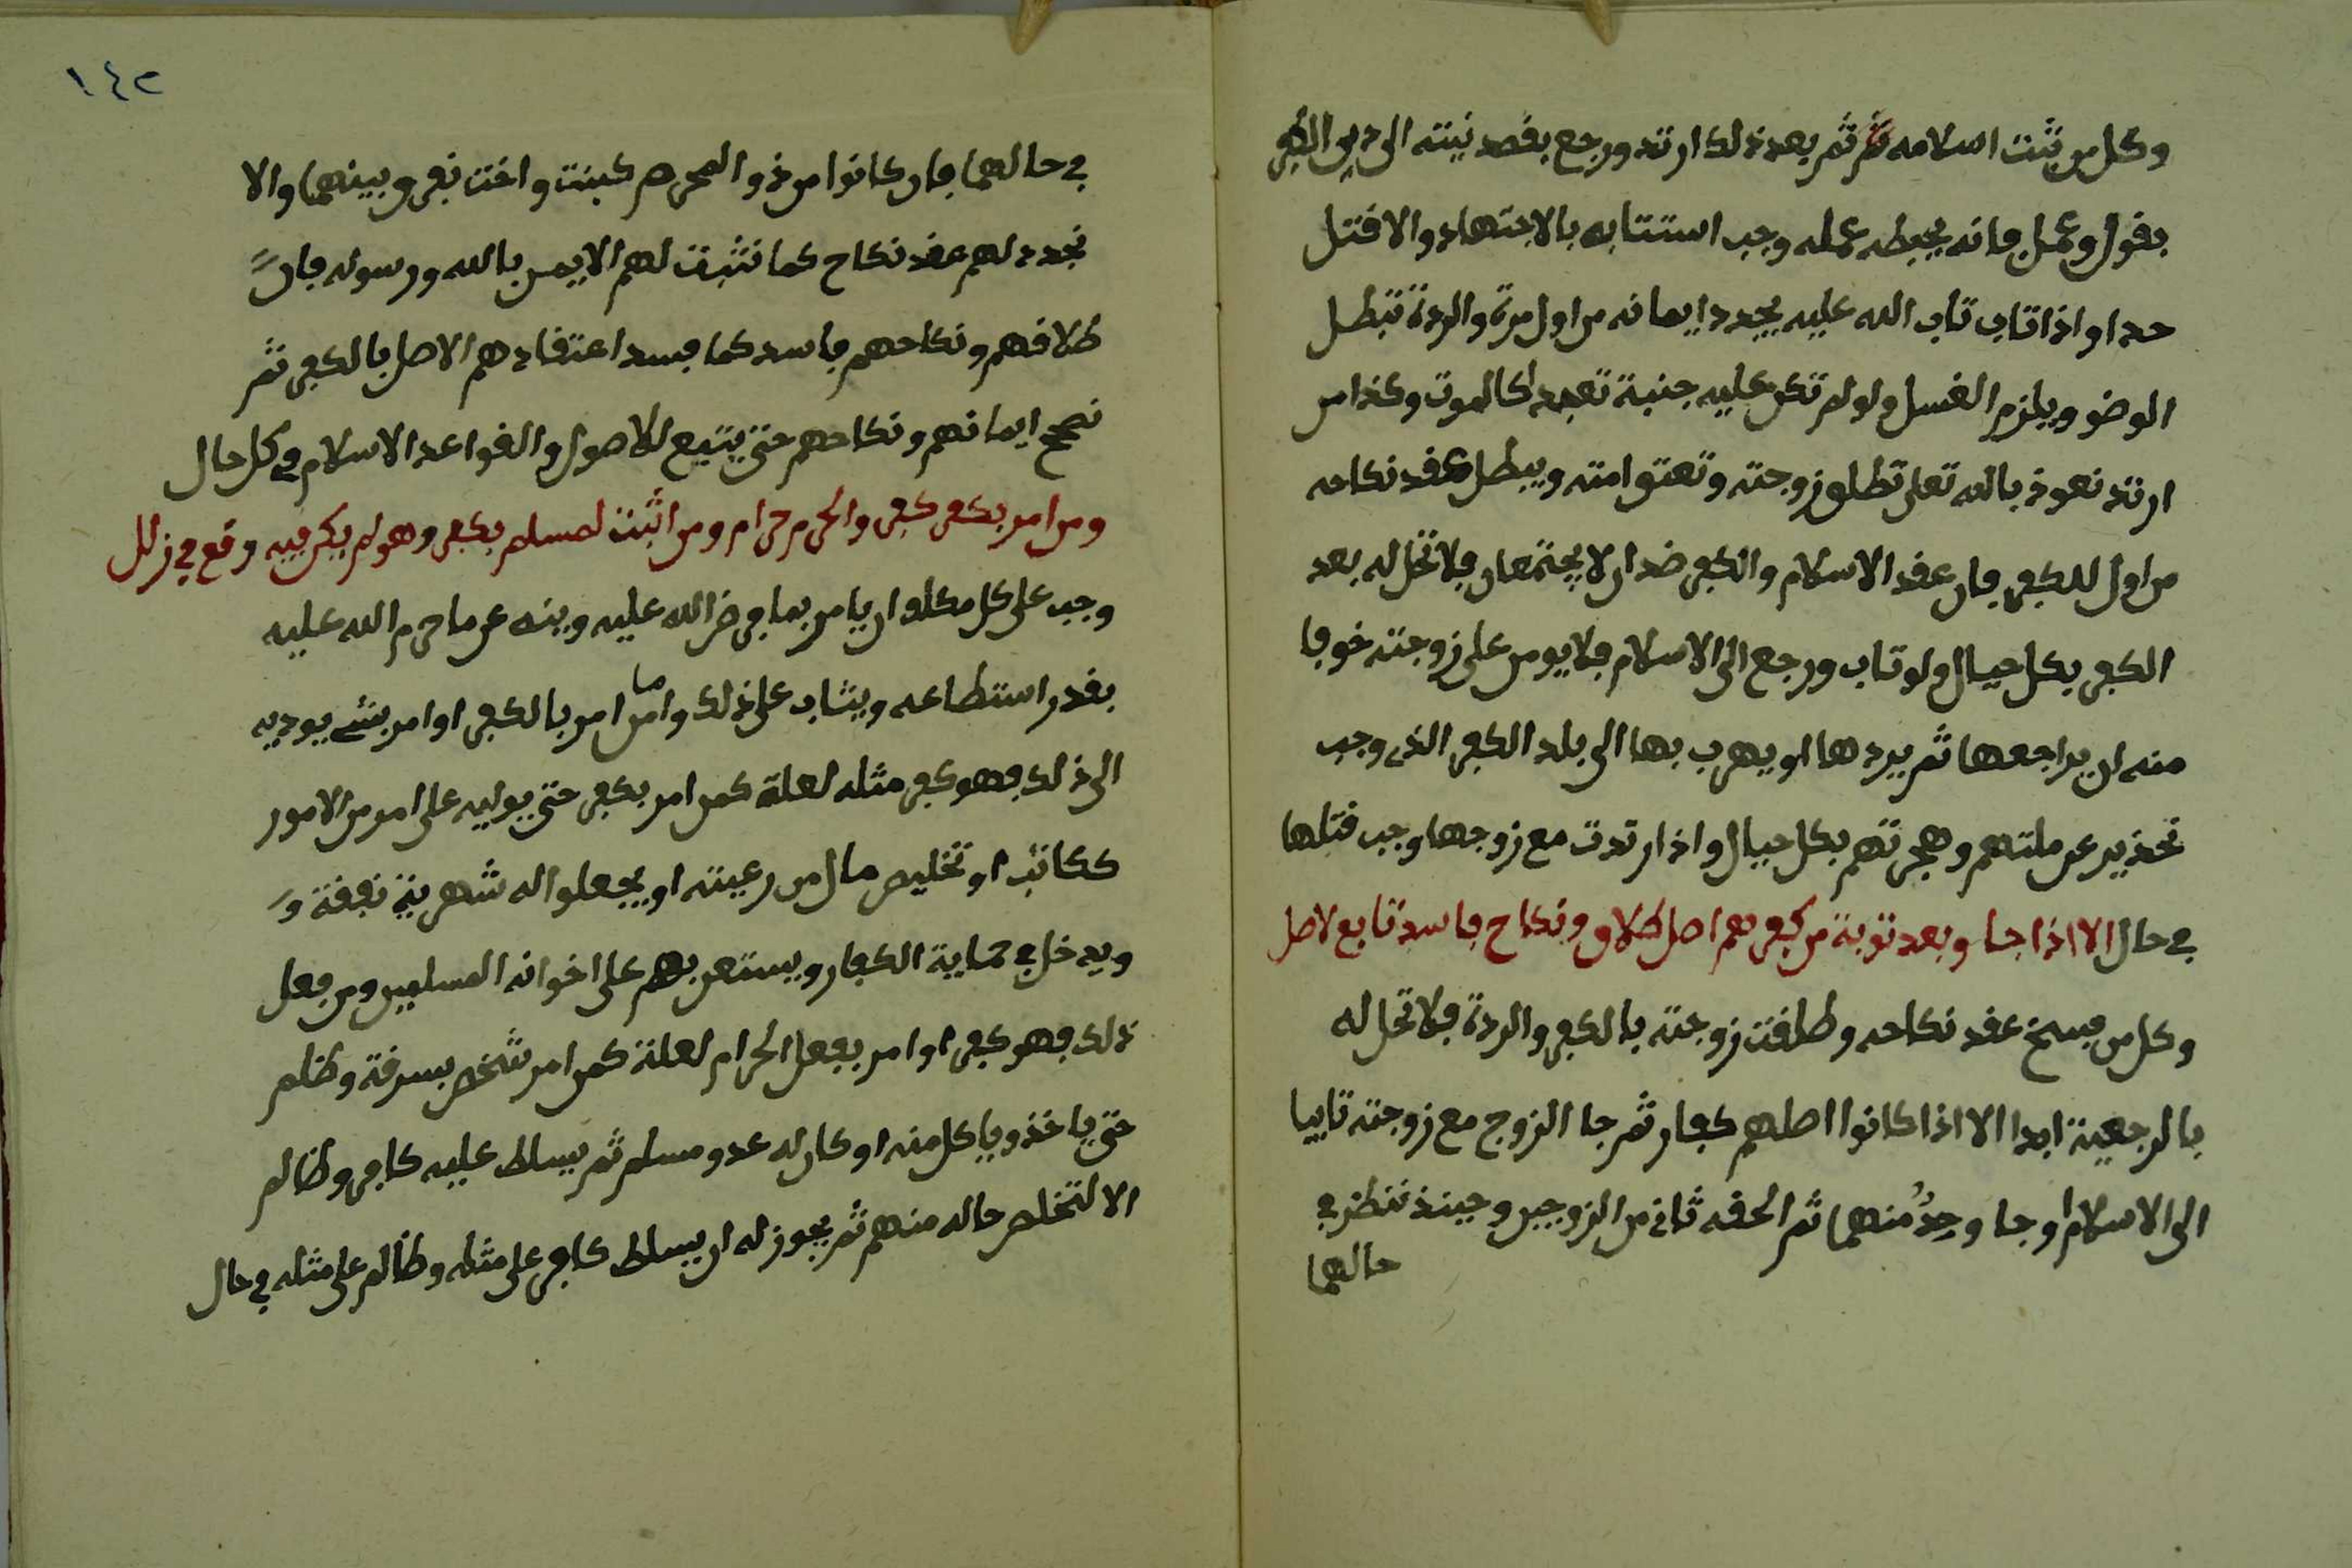 وكل من يثبت اسلامه ثم ثم بعد ذلك ارتد ورجع بقصد نيته الى دين الكفر
بقول وعمل فانه يحبطه عمله وجب استتابه بالاجتهاد والا قتل
حدا واذا تاب تاب الله عليه يجدد ايمانه من اول مرة والردة تبطل
الوضو ويلزم الغسل ولو لم تكن عليه جنبة تعبدا كالموت وكذا من
ارتد نعوذ بالله تعلى تطلق زوجته وتعتق امته ويبطل عقد نكاحه
من اول للكفر فان عقد الاسلام والكفر ضدان لا يجتمعان فلا تحل له بعد
الكفر بكل حيال ولو تاب ورجع الى الاسلام فلا يومن على زوجته خوفا
منه ان يراجعها ثم يردها او يهرب بها الى بلد الكفر الذى وجب
تحذير عن ملتهم وهجرتهم بكل حيال واذا ارتدت مع زوجها وجب قتلها
في حال الا اذا جا وبعد توبة من كفرهم اصل طلاق ونكاح فاسد تابع لاصل
وكل من فسخ عقد نكاحه وطلقت زوجته بالكفر والردة فلا تحل له
بالرجعية ابدا الا اذا كانوا اصلهم كفار ثم جا الزوج مع زوجته تايبا
الى الاسلام او جا وحد منهما ثم الحقه ثاني من الزوجين وحينذ ننظر في
حالهما
١٤٢
في حالهما فان كانوا من ذو المحرم كبنت واخت نفرق بينهما والا
نجدد لهم عقد نكاح كما نثبت لهم الايمن بالله ورسوله فان
طلاقهم ونكاحهم فاسد كما فسد اعتقادهم الاصل بالكفر ثم
نصحح ايمانهم ونكاحهم حتى يتبع للاصول والقواعد الاسلام في كل حال
ومن امر بكفر كفر والحرم حرام ومن اثبت لمسلم بكفر وهو لم يكن فيه وقع في زلل
وجب على كل مكلف ان يامر بما فرض الله عليه وينه عن ما حرم الله عليه
بقدر استطاعه ويثاب على ذلك واما من امر بالكفر او امر بشىء يوديه
الى ذلك فهو كفر مثله لعلة كمن امر بكفر حتى يوليه على امر من الامور
ككاتب او تخليص مال من رعيته او يجعلوا له شهرية نفقة و
ويدخل في حماية الكفار ويستعن بهم على اخوانه المسلمين ومن فعل
ذلك فهو كفر او امر بفعل الحرام لعلة كمن امر شخص بسرقة وظلم
حتى ياخذ وياكل منه او كان له عدو مسلم ثم يسلط عليه كافر وظالم
الا لتخلص حاله منهم ثم يجوز له ان يسلط كافر على مثله وظالم على مثله في حال